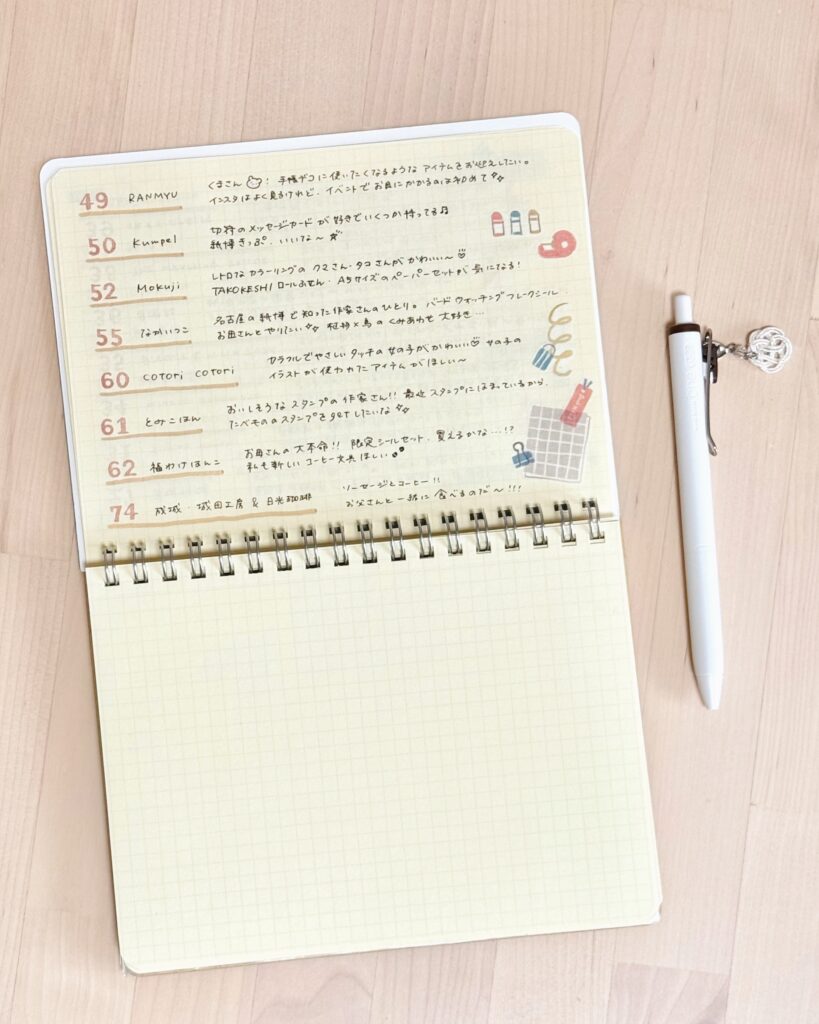 49 RANMYU
くまさん！手帳デコに使いたくなるようなアイテムをお迎えしたい。
インスタはよく見るけれど、イベントでお目にかかるのは初めて
50 Kumpel
切符のメッセージカードが好きでいくつか持ってる♫
紙博きっぷ、いいな〜
52 Mokuji
レトロなカラーリングのクマさん・タコさんがかわいい〜♡
TAKOKESHI ロールふせん・A5サイズのペーパーセットが気になる！
55 ながいつこ
名古屋の紙博で知った作家さんのひとり。バードウォッチングフレークシール
お母さんとやりたい 植物×鳥のくみあわせ大好き…
60 cotori cotori
カラフルでやさしいタッチの女の子がかわいい♡ 女の子の
イラストが使われたアイテムがほしい〜
61 とみこはん
おいしそうなスタンプの作家さん!! 最近スタンプにはまっているから、
たべもののスタンプをgetしたいな
62 福わけほんこ
お母さんの大本命!! 限定シールセット、買えるかな…!?
私も新しいコーヒー文具ほしい
74 成城・城田工房 & 日光珈琲
ソーセージとコーヒー!!
お父さんと一緒に食べるのだ〜!!!